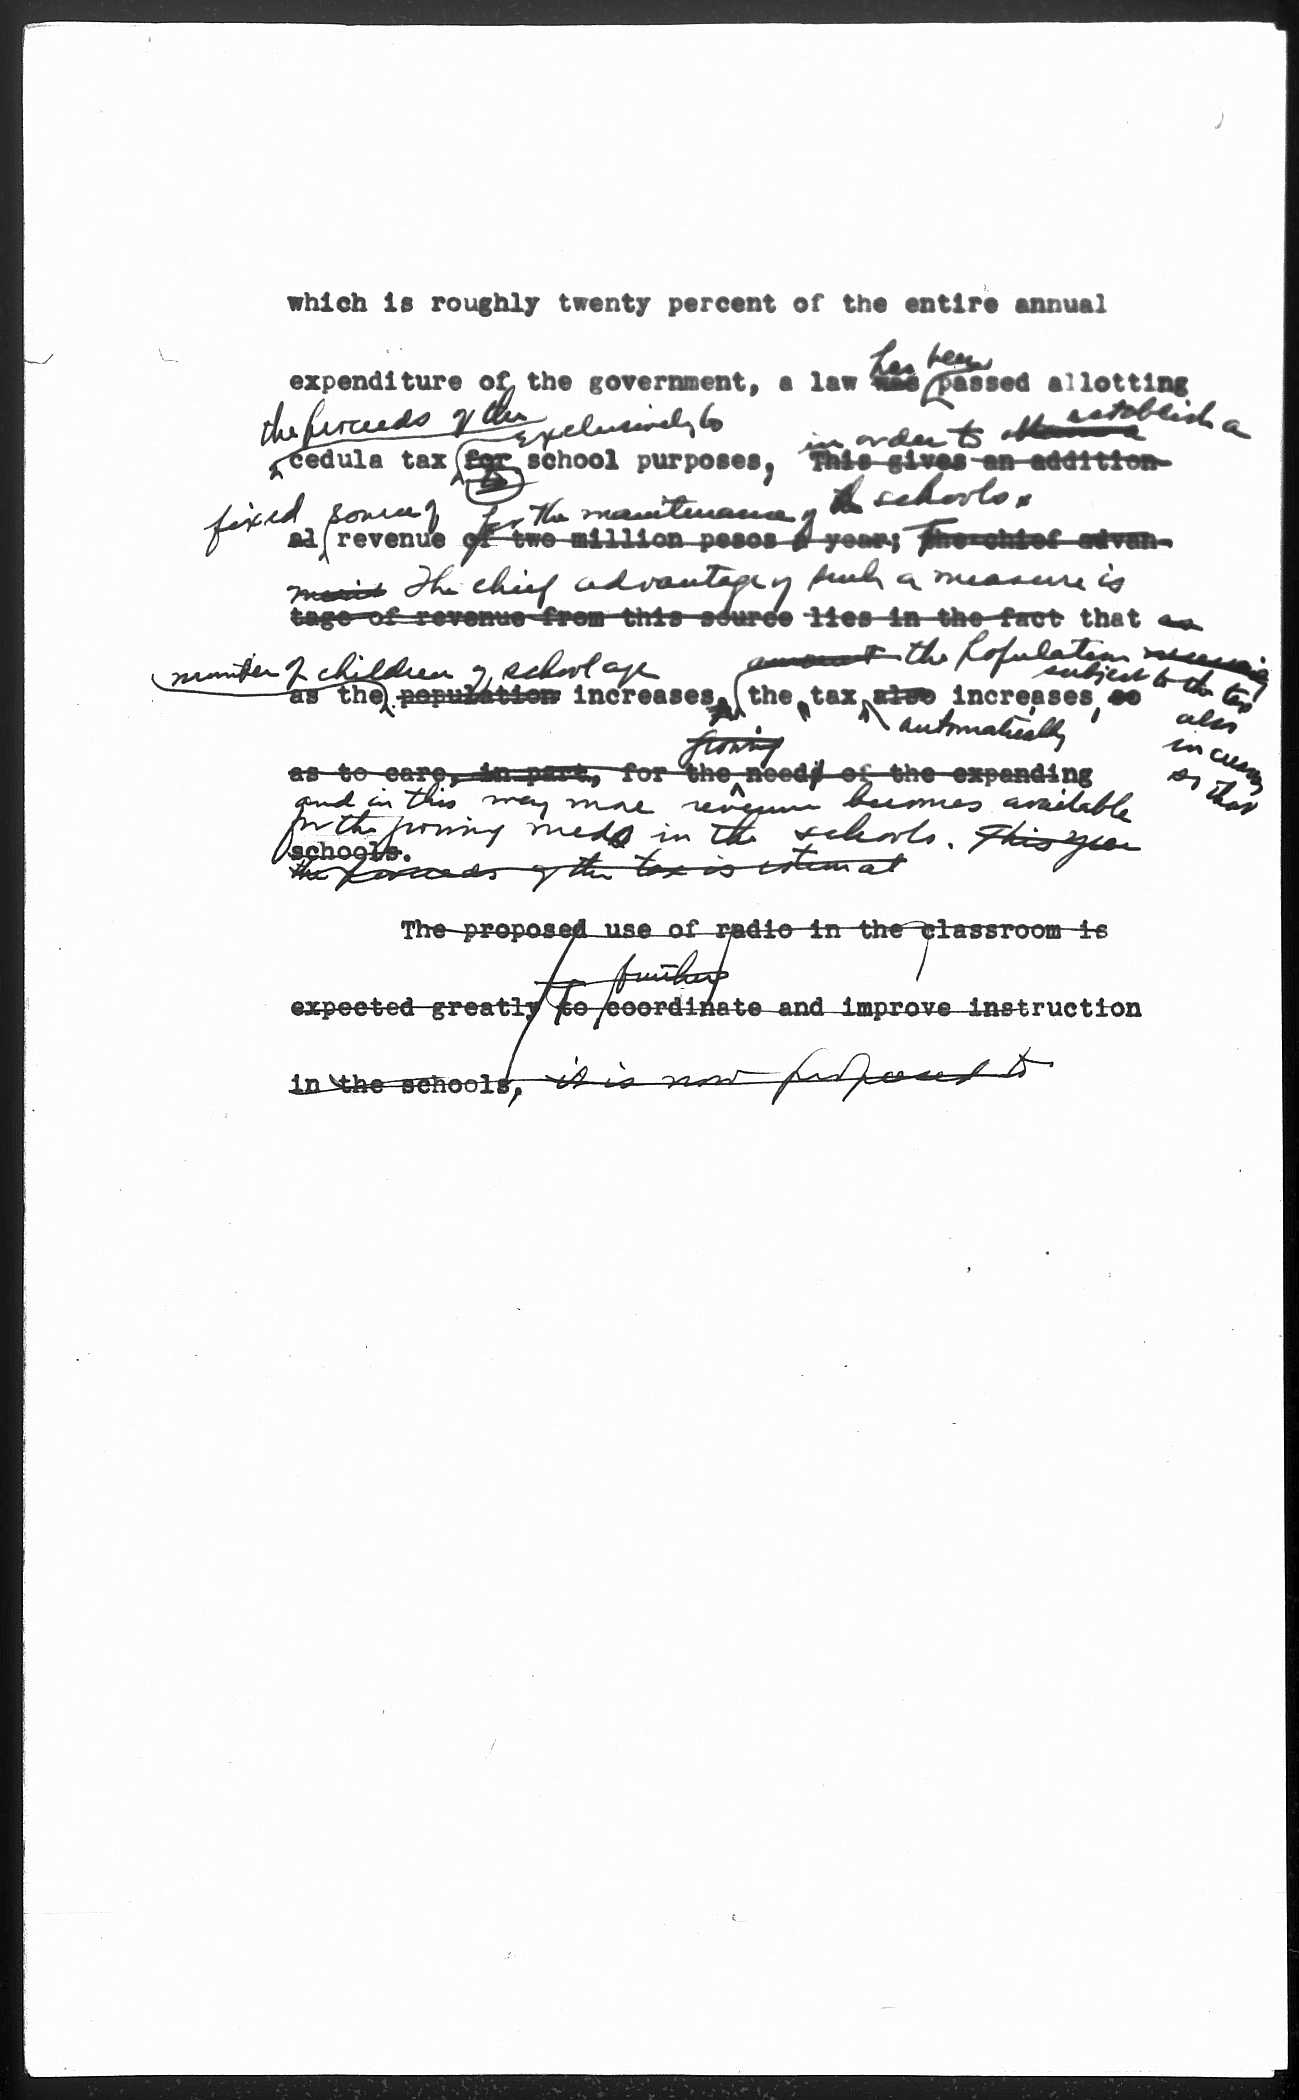 which is roughly twenty percent of the entire annual
has been
expenditure of the government, a law was passed allotting
the proceeds of the exclusively to in order to establish a
cedula tax for school purposes, This gives an addition-
to
fixed source of for the maintenance of the schools.
al revenue of two million pesos a year; The chief advan-
The chief advantage of such a measure is
tage of revenue from this source lies in the fact that as
number of children of school age amount the population
subject to the tax
as the population increases, the tax also increases, so
also
automatically
increases
so that
growing
as to care, in part, for the needs of the expanding
and in this way more revenue becomes available
for the growing needs in the schools. This year
schools.
the proceeds of the tax is estimat
The proposed use of radio in the classroom is
further
expected greatly to coordinate and improve instruction
in the schools, it is now proposed to